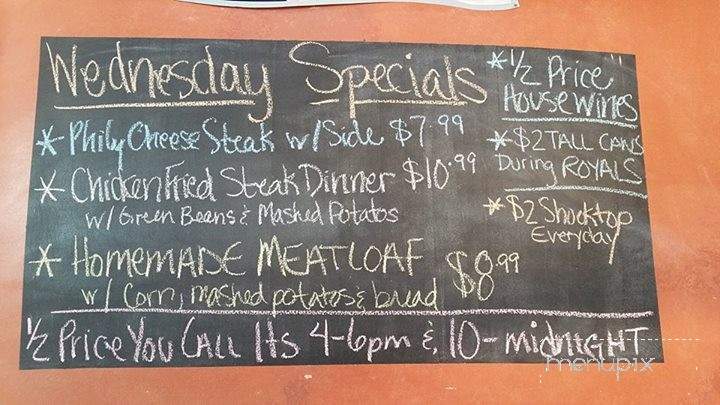 Wednesday Specials
* Phily Cheese Steak w/ Side $7.99
* Chicken Fried Steak Dinner $10.99
w/ Green Beans & Mashed Potatos
* HOMEMADE MEATLOAF $8.99
w/ Corn, mashed potatos & bread
* 1/2 Price
House Wines
* $2 TALL CANS
During ROYALS
* $2 Shocktop
Everyday
1/2 Price You CALL Its 4-6pm & 10-midNIGHT
menupix